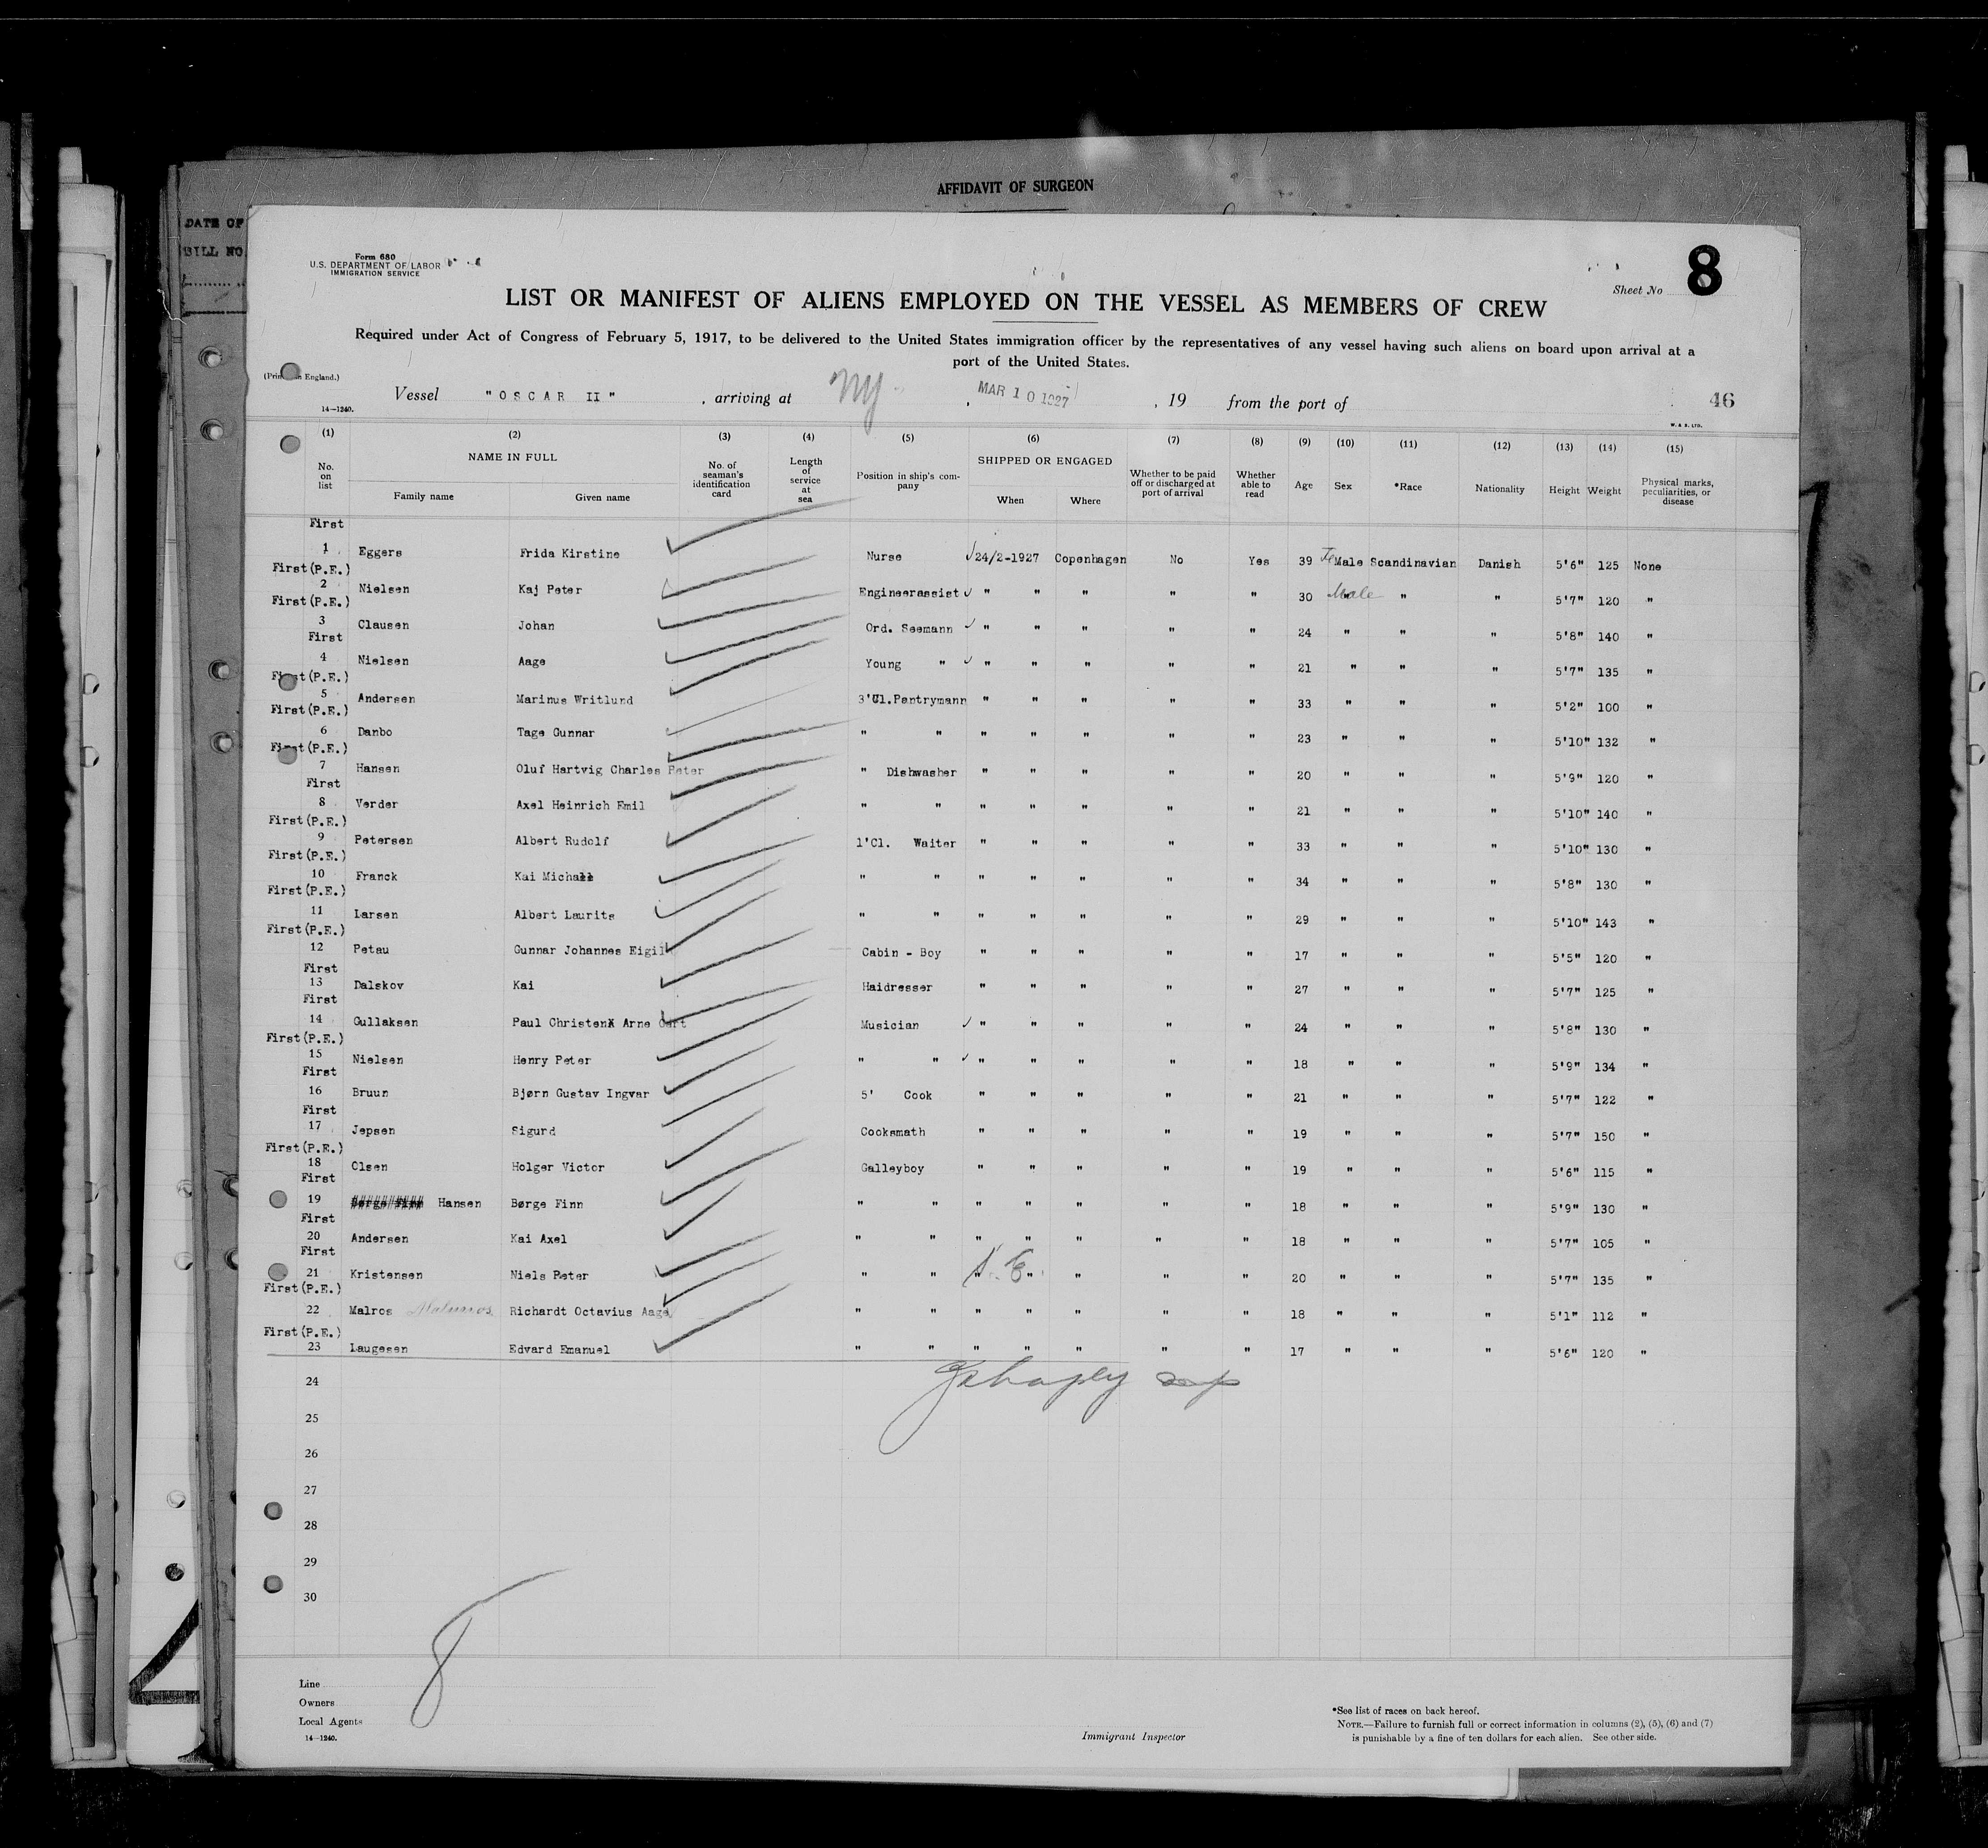 AFFIDAVIT OF SURGEON
DATE OF
BILL NO
Form 680
U.S. DEPARTMENT OF LABOR
IMMIGRATION SERVICE
Sheet No 8
LIST OR MANIFEST OF ALIENS EMPLOYED ON THE VESSEL AS MEMBERS OF CREW
Required under Act of Congress of February 5, 1917, to be delivered to the United States immigration officer by the representatives of any vessel having such aliens on board upon arrival at a
port of the United States.
(Printed in England.)
Vessel "OSCAR II" , arriving at NY , MAR 10 1927 , 19 from the port of 46
14—1240.
W. & S. LTD.
(1) (2) (3) (4) (5) (6) (7) (8) (9) (10) (11) (12) (13) (14) (15)
No. on list NAME IN FULL Family name Given name No. of seaman's identification card Length of service at sea Position in ship's company SHIPPED OR ENGAGED When Where Whether to be paid off or discharged at port of arrival Whether able to read Age Sex *Race Nationality Height Weight Physical marks, peculiarities, or disease
First
1 Eggers Frida Kirstine Nurse 24/2-1927 Copenhagen No Yes 39 FeMale Scandinavian Danish 5'6" 125 None
First(P.E.)
2 Nielsen Kaj Peter Engineerassist " " " " " 30 Male " " 5'7" 120 "
First(P.E.)
3 Clausen Johan Ord. Seemann " " " " " 24 " " " 5'8" 140 "
First
4 Nielsen Aage Young " " " " " " 21 " " " 5'7" 135 "
First(P.E.)
5 Andersen Marinus Writlund 3'Cl.Pantrymann " " " " " 33 " " " 5'2" 100 "
First(P.E.)
6 Danbo Tage Gunnar " " " " " " " 23 " " " 5'10" 132 "
First(P.E.)
7 Hansen Oluf Hartvig Charles Peter " Dishwasher " " " " " 20 " " " 5'9" 120 "
First
8 Verder Axel Heinrich Emil " " " " " " " 21 " " " 5'10" 140 "
First(P.E.)
9 Petersen Albert Rudolf 1'Cl. Waiter " " " " " 33 " " " 5'10" 130 "
First(P.E.)
10 Franck Kai Michall " " " " " " " 34 " " " 5'8" 130 "
First(P.E.)
11 Larsen Albert Laurits " " " " " " " 29 " " " 5'10" 143 "
First(P.E.)
12 Petau Gunnar Johannes Eigil Cabin - Boy " " " " " 17 " " " 5'5" 120 "
First
13 Dalskov Kai Haidresser " " " " " 27 " " " 5'7" 125 "
First
14 Gullaksen Paul Christen Arne Gert Musician " " " " " 24 " " " 5'8" 130 "
First(P.E.)
15 Nielsen Henry Peter " " " " " " " 18 " " " 5'9" 134 "
First
16 Bruun Bjørn Gustav Ingvar 5' Cook " " " " " 21 " " " 5'7" 122 "
First
17 Jepsen Sigurd Cooksmath " " " " " 19 " " " 5'7" 150 "
First(P.E.)
18 Olsen Holger Victor Galleyboy " " " " " 19 " " " 5'6" 115 "
First
19 Børge Finn Hansen Børge Finn " " " " " " " 18 " " " 5'9" 130 "
First
20 Andersen Kai Axel " " " " " " " 18 " " " 5'7" 105 "
First
21 Kristensen Niels Peter " " " " " " " 20 " " " 5'7" 135 "
First(P.E.)
22 Malros Malmros Richardt Octavius Aage " " " " " " " 18 " " " 5'1" 112 "
First(P.E.)
23 Laugesen Edvard Emanuel " " " " " " " 17 " " " 5'6" 120 "
24
25
26
27
28
29
30
8
Line
Owners
Local Agents
14—1240.
Immigrant Inspector
*See list of races on back hereof.
NOTE.—Failure to furnish full or correct information in columns (2), (5), (6) and (7)
is punishable by a fine of ten dollars for each alien. See other side.